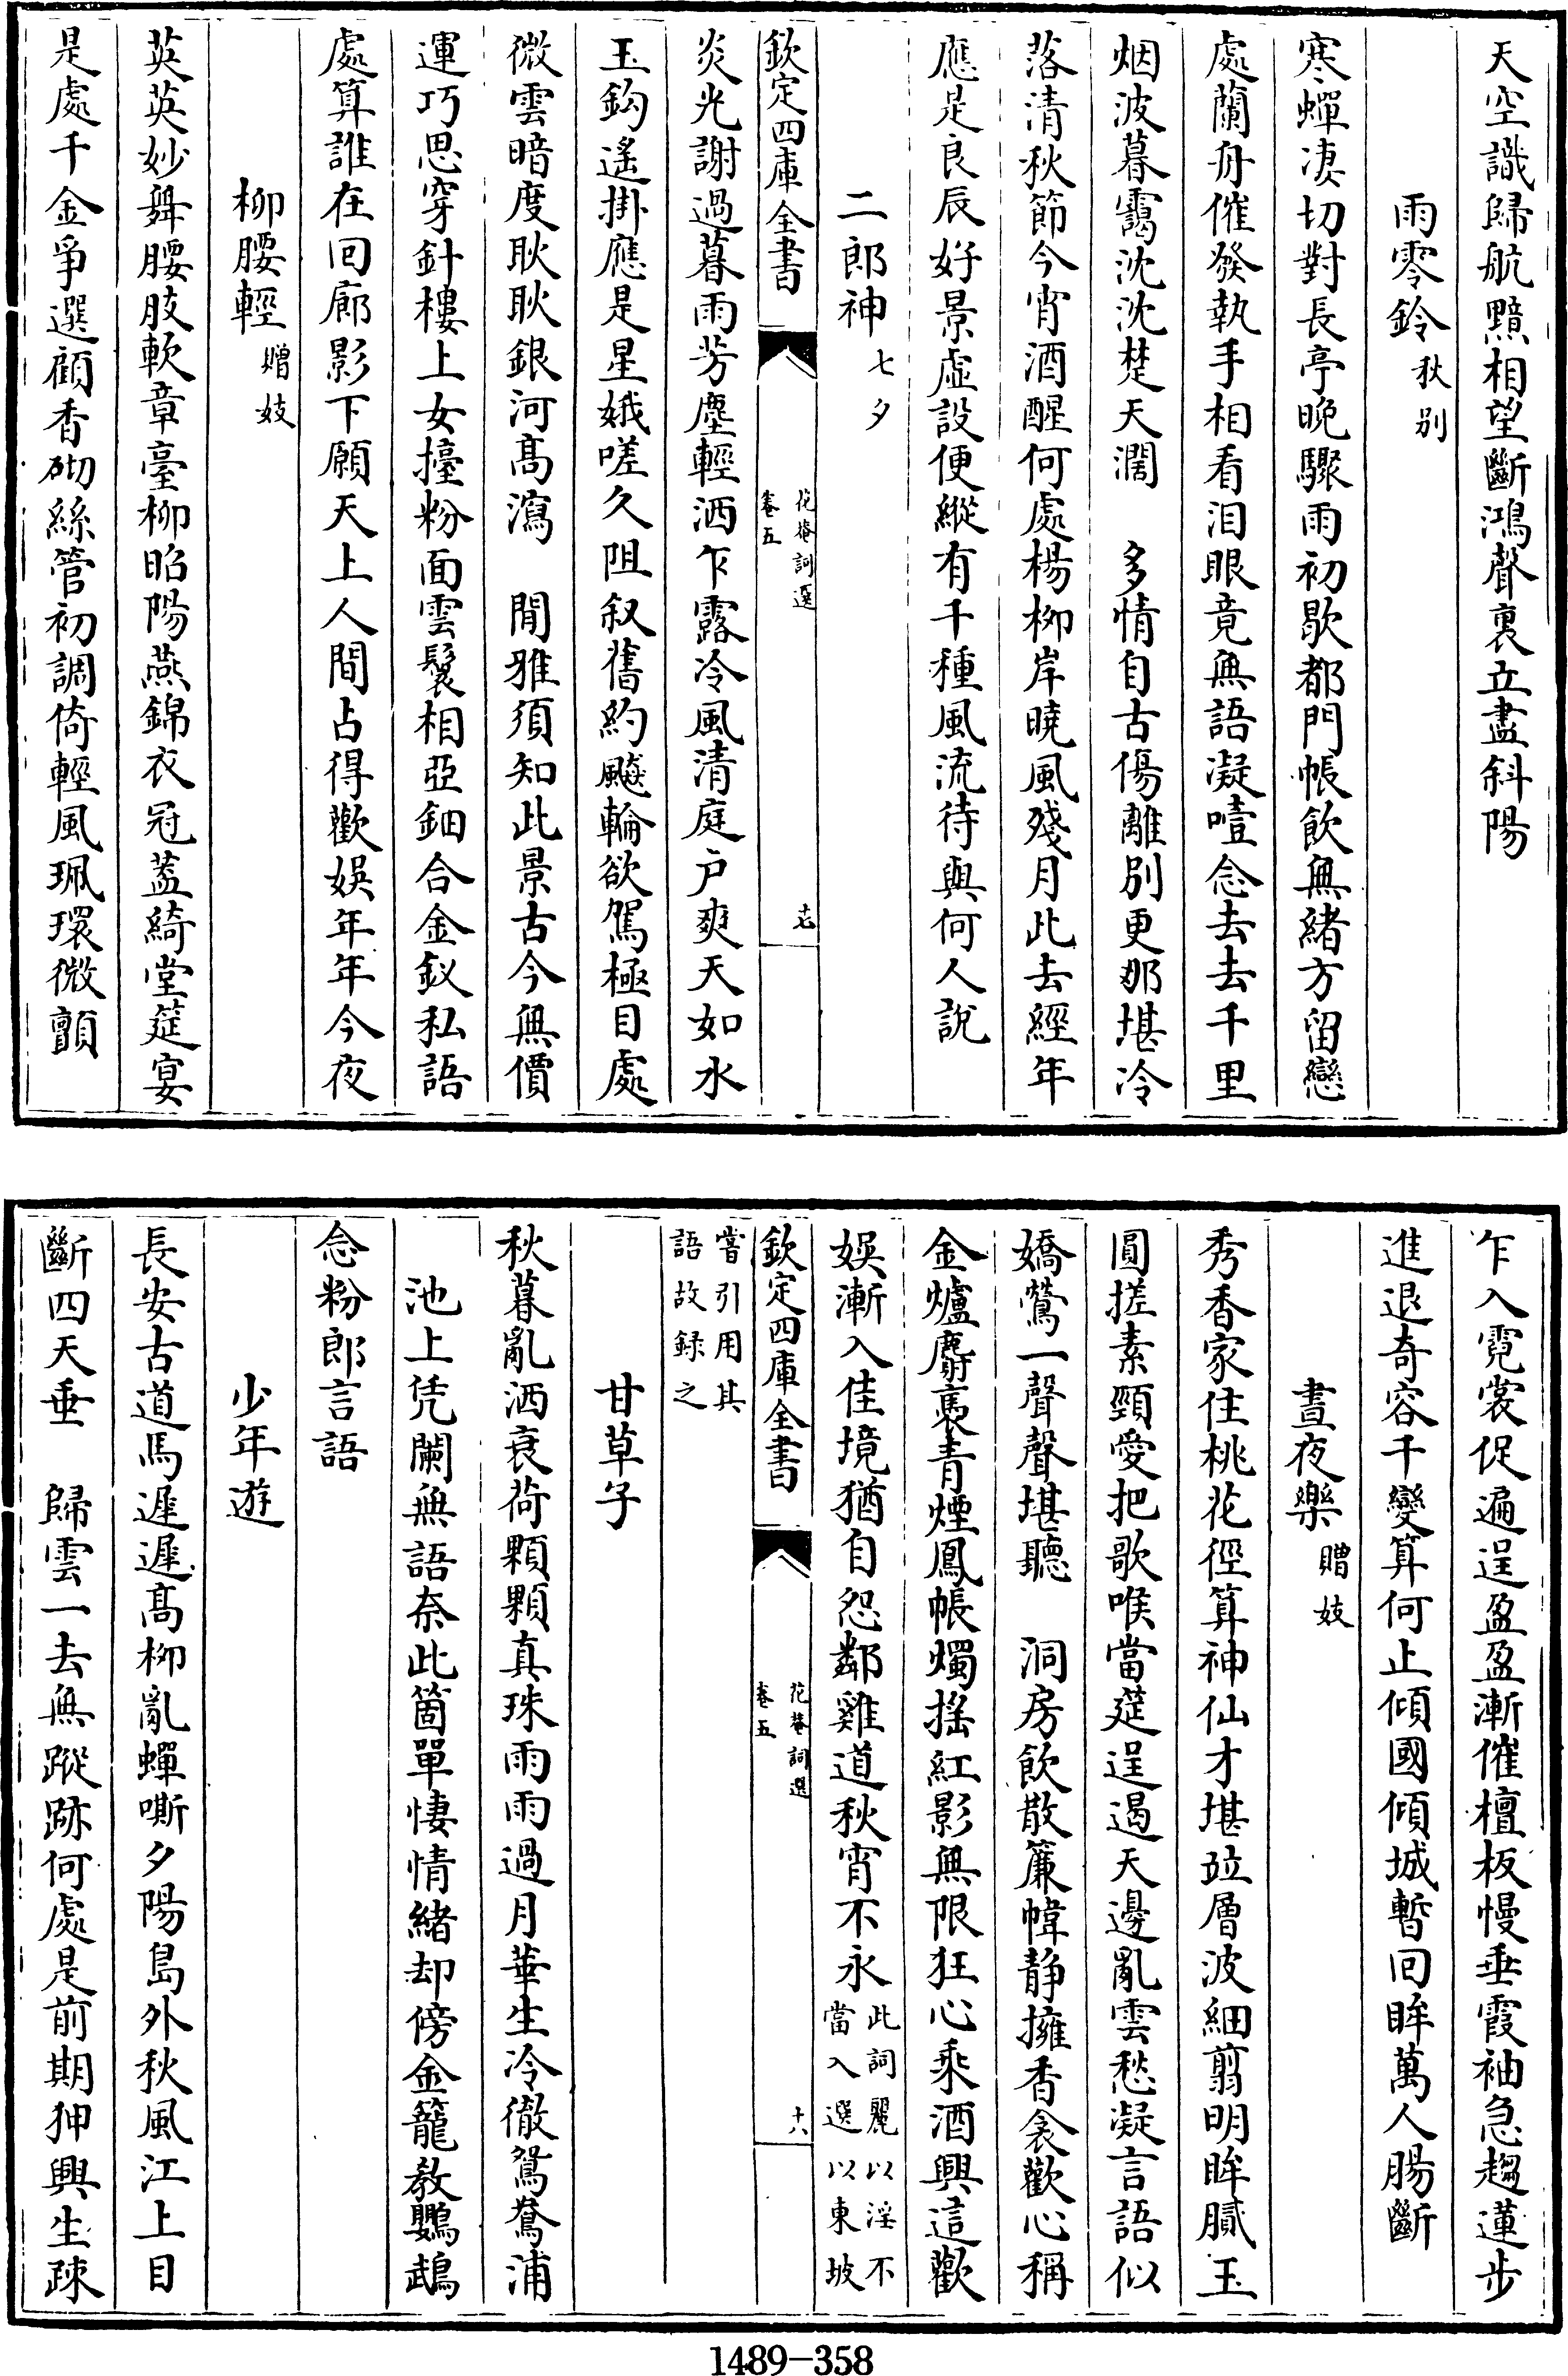 天空識歸航黯相望斷鴻聲裏立盡斜陽
雨零鈴秋别
寒蟬凄切對長亭晚驟雨初歇都門帳飲無緒方留戀
處蘭舟催發執手相看淚眼竟無語凝噎念去去千里
烟波暮靄沈沈楚天濶　多情自古傷離別更那堪冷
落清秋節今宵酒醒何處楊柳岸曉風殘月此去經年
應是良辰好景虛設便縱有千種風流待與何人説
二郎神七夕
欽定四庫全書
花菴詞選
卷五
十七
炎光謝過暮雨芳塵輕洒乍露冷風清庭户爽天如水
玉鈎遙掛應是星娥嗟久阻叙舊約飈輪欲駕極目處
微雲暗度耿耿銀河髙瀉　閒雅須知此景古今無價
運巧思穿針樓上女擡粉面雲鬟相亞鈿合金釵私語
處算誰在回廊影下願天上人間占得歡娛年年今夜
柳腰輕贈妓
英英妙舞腰肢軟章臺柳昭陽燕錦衣冠蓋綺堂筵宴
是處千金爭選顧香砌絲管初調倚輕風珮環微顫
乍入霓裳促遍逞盈盈漸催檀板慢垂霞袖急趨蓮步
進退奇容千變算何止傾國傾城暫回眸萬人腸斷
晝夜樂贈妓
秀香家住桃花徑算神仙才堪竝層波細翦明眸膩玉
圓搓素頸愛把歌喉當筵逞遏天邊亂雲愁凝言語似
嬌鶯一聲聲堪聽　洞房飲散簾幃静擁香衾歡心稱
金爐麝裊青煙鳳帳燭搖紅影無限狂心乘酒興這歡
娛漸入佳境猶自怨鄰雞道秋宵不永此詞麗以淫不
當入選以東坡
欽定四庫全書
花菴詞選
卷五
十八
嘗引用其
語故録之
甘草子
秋暮亂洒衰荷顆顆真珠雨雨過月華生冷徹鴛鴦浦
池上凭闌無語奈此箇單悽情緒却傍金籠教鸚鵡
念粉郎言語
少年遊
長安古道馬遲遲髙柳亂蟬嘶夕陽島外秋風江上目
斷四天垂　歸雲一去無蹤跡何處是前期狎興生疎
1489-358